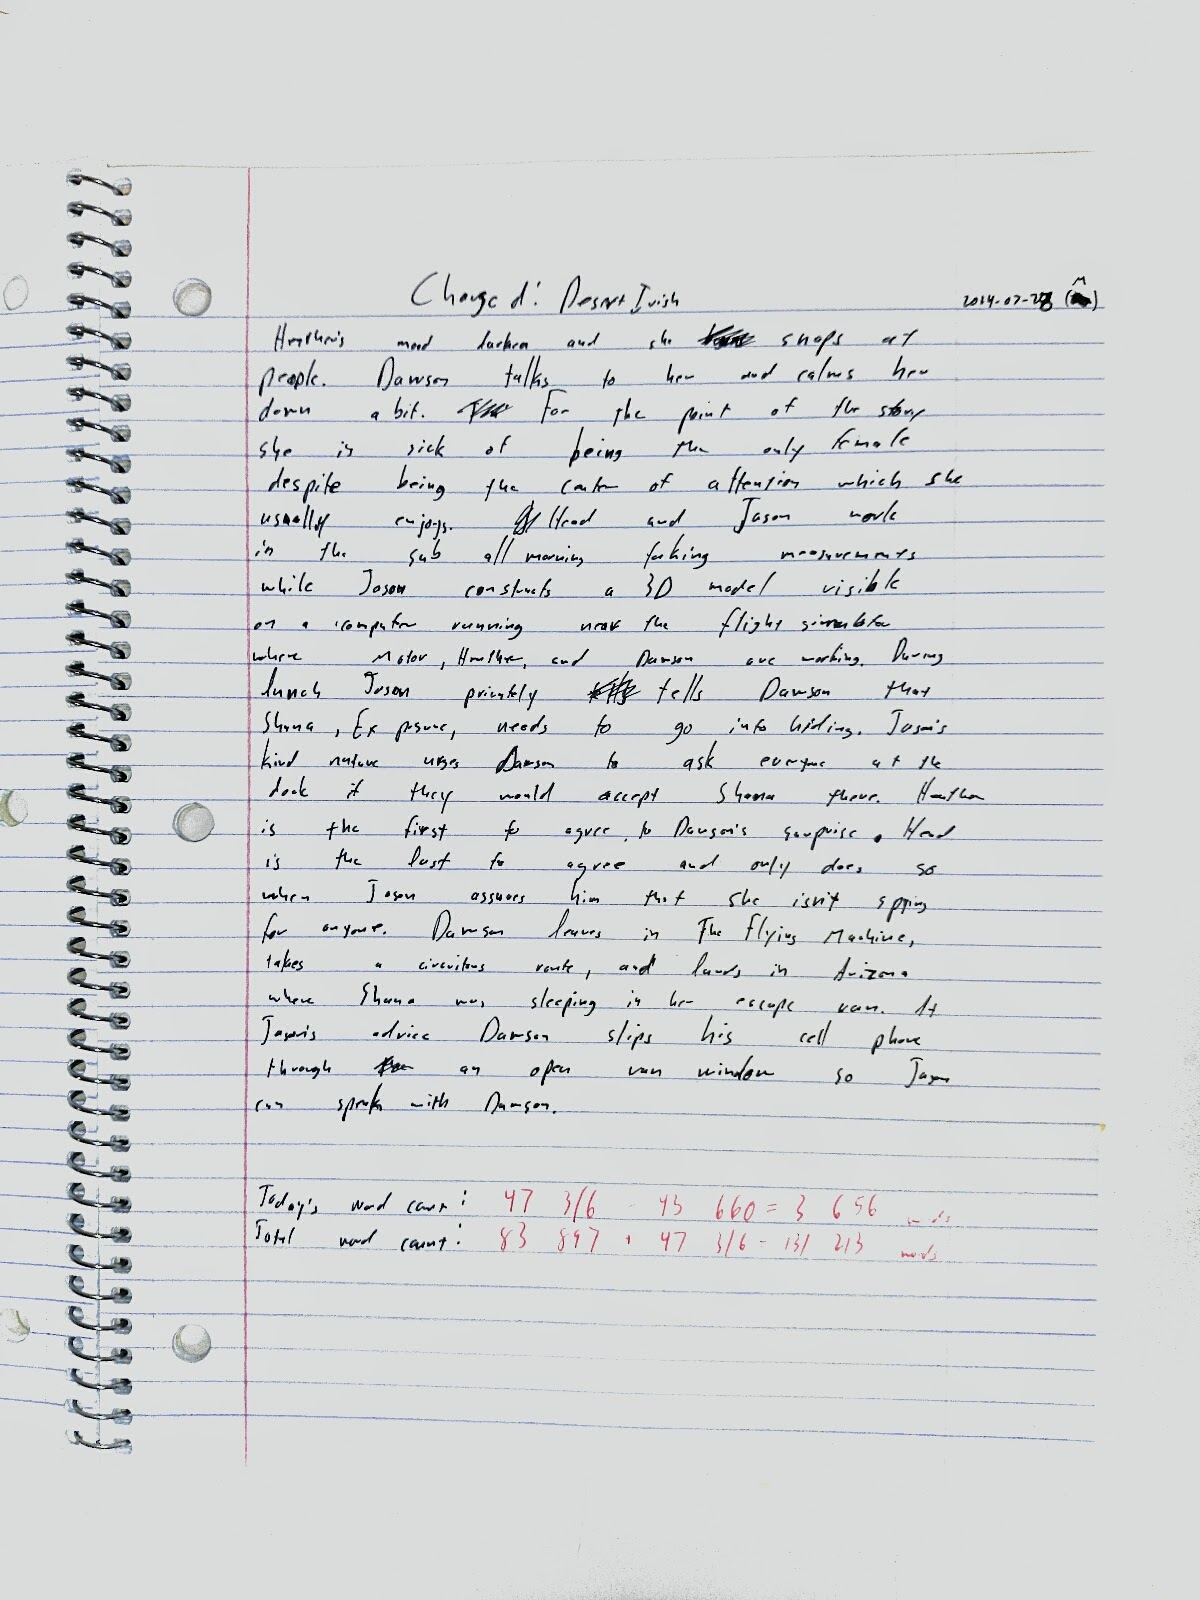 Charged: Desert Irish 2014-07-28 (M)
Heather's mood darken and she snaps at
people. Dawson talks to her and calms her
down a bit. For the point of the story
she is sick of being the only female
despite being the center of attention which she
usually enjoys. Head and Jason work
in the sub all morning taking measurements
while Jason constructs a 3D model visible
on a computer running near the flight simulator
where Motor, Heather, and Dawson are working. During
lunch Jason privately tells Dawson that
Shana, Exposure, needs to go into hiding. Jason's
kind nature urges Dawson to ask everyone at the
dock if they would accept Shana there. Heather
is the first to agree, to Dawson's surprise. Head
is the last to agree and only does so
when Jason assures him that she isn't spying
for anyone. Dawson leaves in The Flying Machine,
takes a circuitous route, and lands in Arizona
where Shana was sleeping in her escape van. At
Jason's advice Dawson slips his cell phone
through an open van window so Jason
can speak with Dawson.
Today's word count: 47 316 - 43 660 = 3 656 words
Total word count: 83 897 + 47 316 = 131 213 words